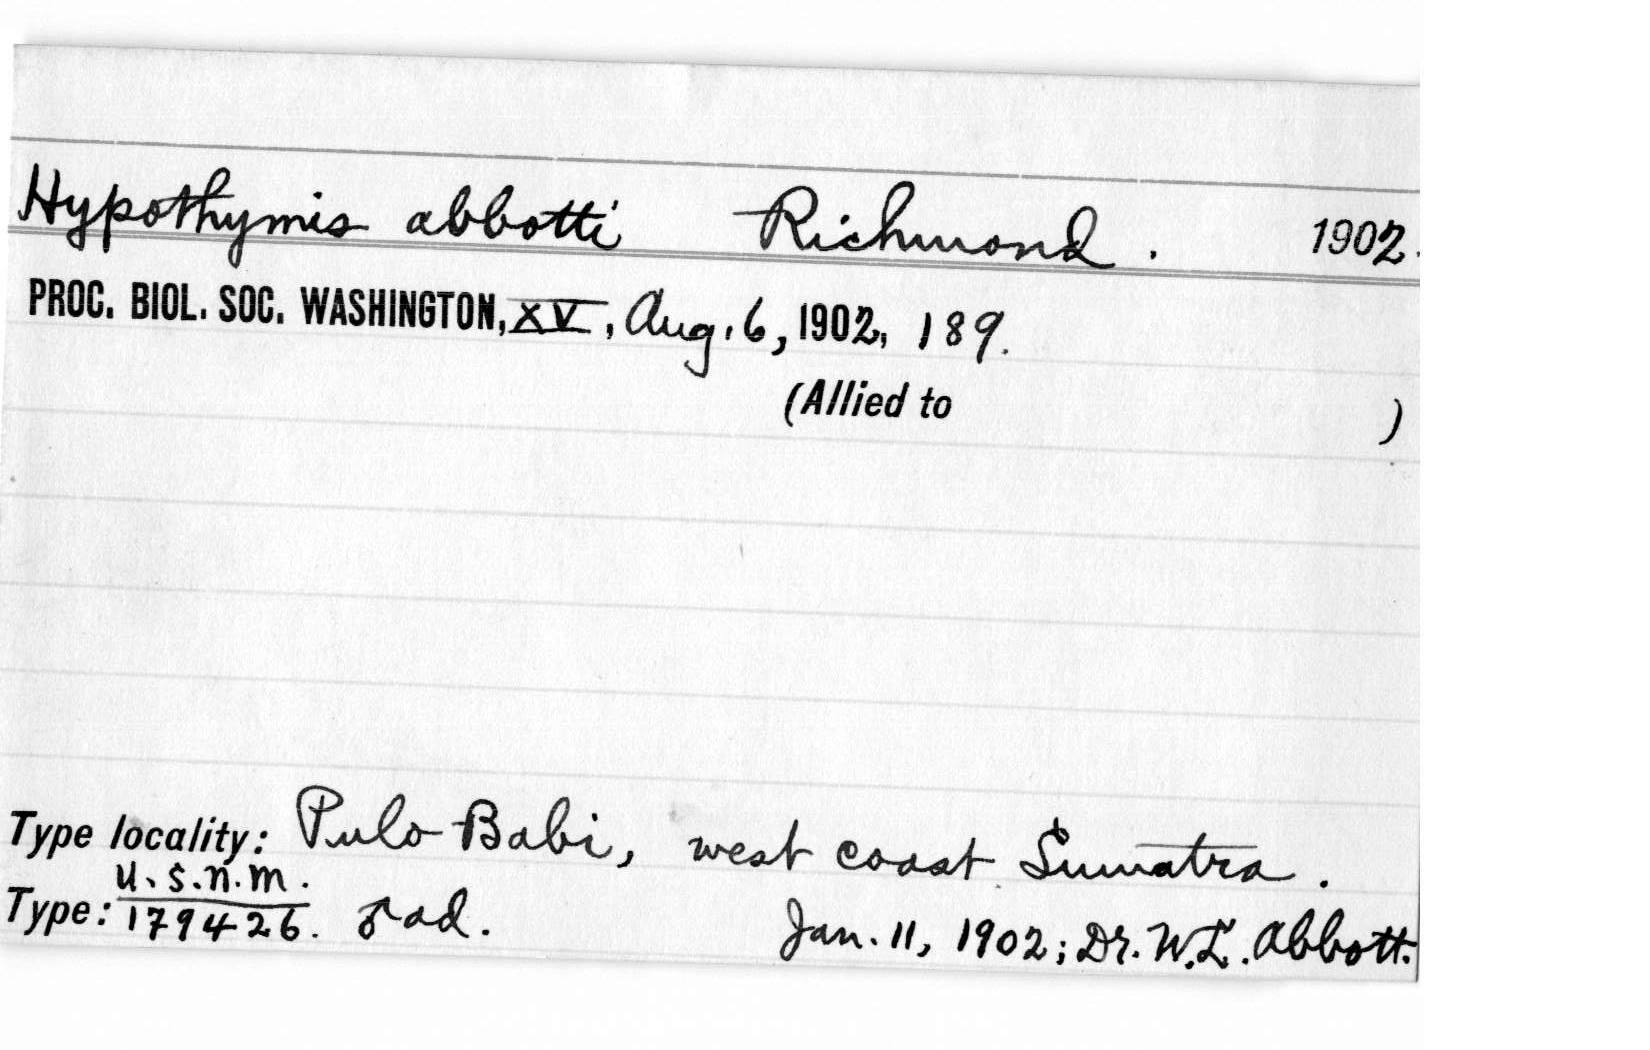 Hypothymis abbotti Richmond. 1902.
PROC. BIOL. SOC. WASHINGTON, XV, Aug. 6, 1902, 189.
(Allied to )
Type locality: Pulo Babi, west coast Sumatra.
U.S.N.M.
Type: 179426. ♂ ad. Jan. 11, 1902; Dr. W.L. Abbott.